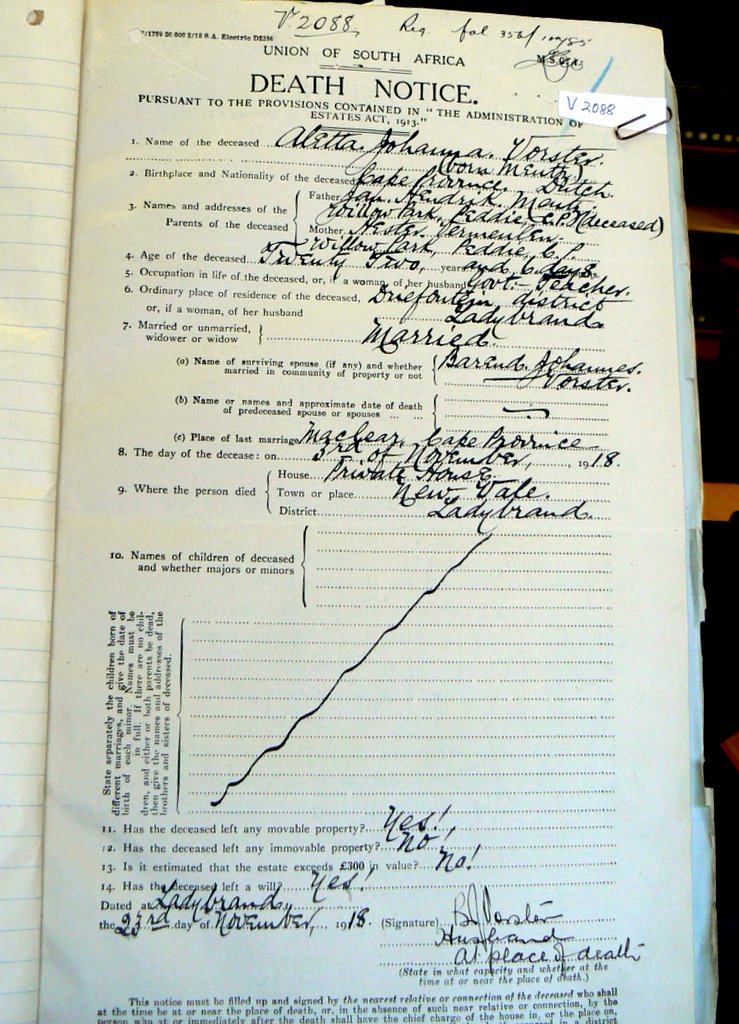 V.2088. Reg. fol 356/
7/1759 20,000 2/18 S.A. Electric DE396
UNION OF SOUTH AFRICA
DEATH NOTICE.
V 2088
PURSUANT TO THE PROVISIONS CONTAINED IN "THE ADMINISTRATION OF
ESTATES ACT, 1913."
1. Name of the deceased Aletta Johanna. Vorster.
(born Mentz)
2. Birthplace and Nationality of the deceased Cape Province. Dutch
3. Names and addresses of the Parents of the deceased
Father Jan. Hendrik. Mentz
Willow Park, Peddie, C.P. (deceased)
Mother Hester Vermeulen,
Willow Park, Peddie, C.P.
4. Age of the deceased Twenty Two, years and 6 days.
5. Occupation in life of the deceased, or, if a woman, of her husband Govt. - Teacher.
6. Ordinary place of residence of the deceased, district
or, if a woman, of her husband Ladybrand.
7. Married or unmarried,
widower or widow Married.
(a) Name of surviving spouse (if any) and whether Barend. Johannes.
married in community of property or not Vorster.
(b) Name or names and approximate date of death
of predeceased spouse or spouses
(c) Place of last marriage Maclear, Cape Province
8. The day of the decease: on 3rd of November, 1918.
9. Where the person died
House Private House
Town or place New Vale.
District Ladybrand.
10. Names of children of deceased
and whether majors or minors
State separately the children born of
different marriages, and give the date of
birth of each minor. Names must be
in full. If there are no chil-
dren, and either or both parents be dead,
then give the names and addresses of the
brothers and sisters of deceased.
11. Has the deceased left any movable property? Yes!
12. Has the deceased left any immovable property? No!
13. Is it estimated that the estate exceeds £300 in value? No!
14. Has the deceased left a will? Yes!
Dated at Ladybrand,
the 23rd day of November, 1918 (Signature) BJVorster
Husband
At place of death
(State in what capacity and whether at the
time at or near the place of death.)
This notice must be filled up and signed by the nearest relative or connection of the deceased who shall
at the time be at or near the place of death, or, in the absence of such near relative or connection, by the
person who at or immediately after the death shall have the chief charge of the house in, or the place on,